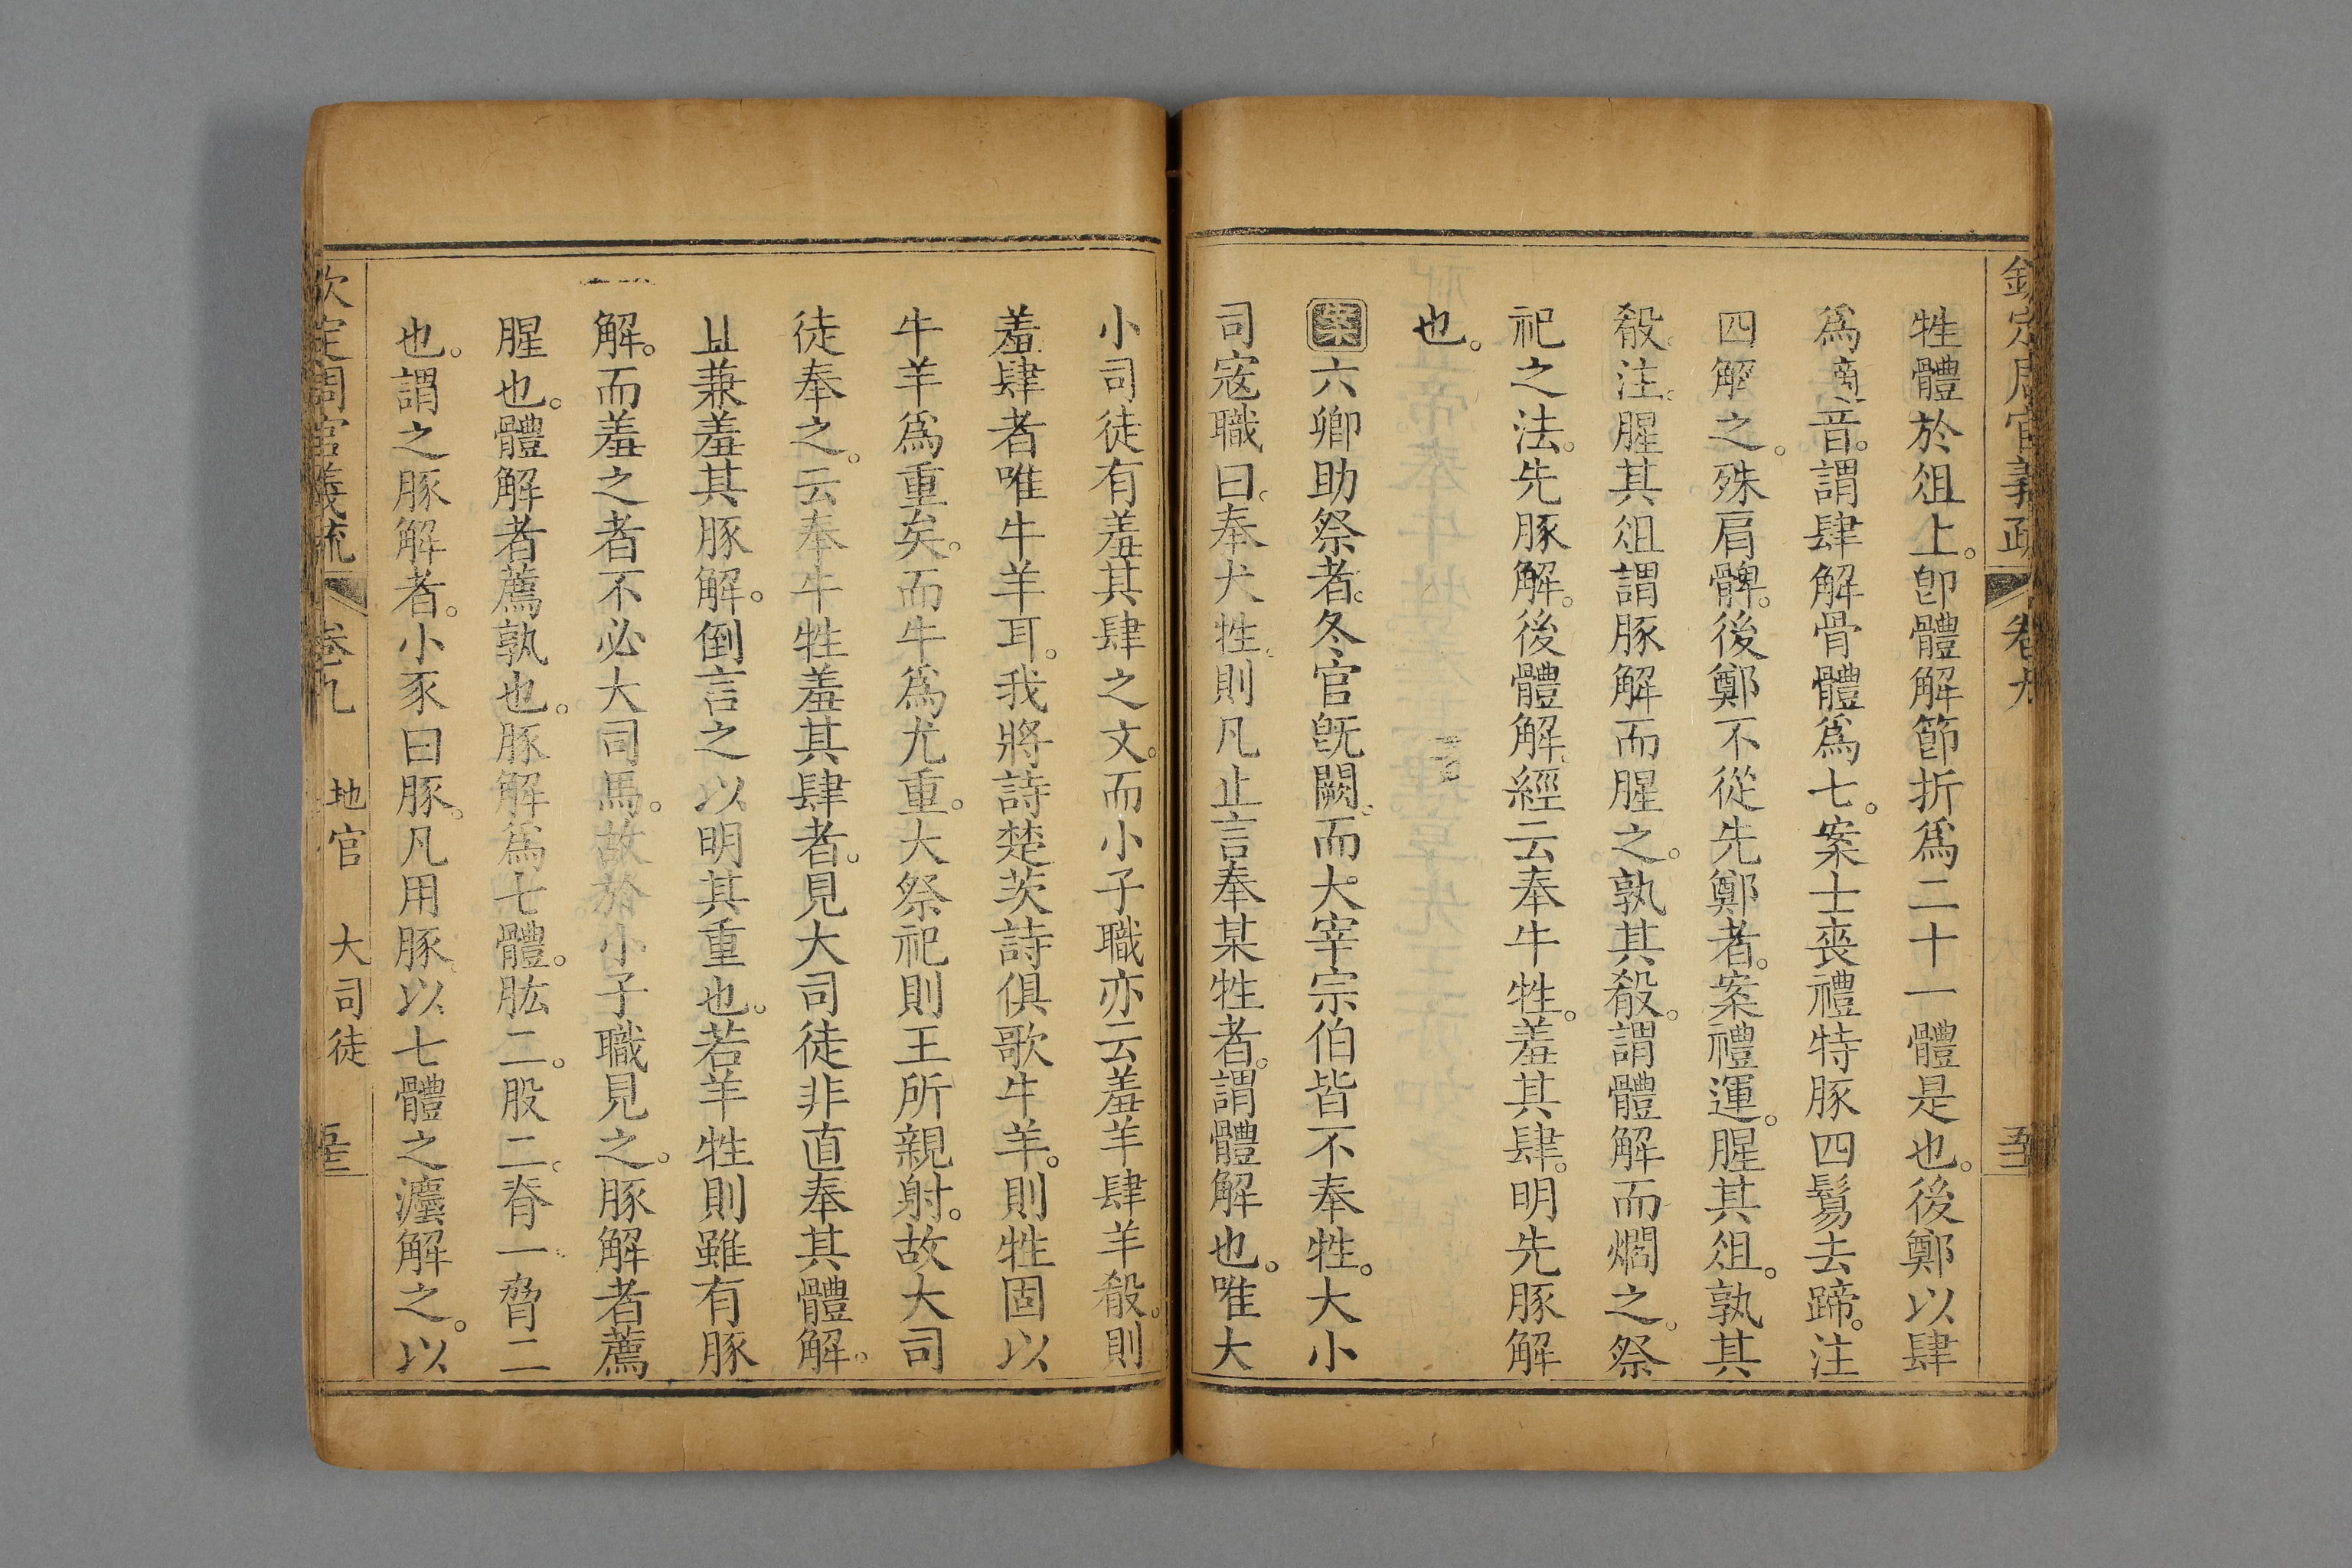 欽定周官義疏 卷九
牲體於俎上。卽體解節折爲二十一體是也。後鄭以肆
爲䰞音。謂肆解骨體爲七。案士喪禮特豚四鬄去蹄。注
四解之。殊肩髀。後鄭不從先鄭者。案禮運。腥其俎。孰其
殽。注。腥其俎謂豚解而腥之。孰其殽。謂體解而爓之。祭
祀之法。先豚解。後體解。經云奉牛牲。羞其肆。明先豚解
也。
案六卿助祭者。冬官旣闕。而大宰宗伯皆不奉牲。大小
司寇職曰。奉犬牲。則凡止言奉某牲者。謂體解也。唯大
小司徒有羞其肆之文。而小子職亦云羞羊肆羊殽。則
羞肆者唯牛羊耳。我將詩楚茨詩俱歌牛羊。則牲固以
牛羊爲重矣。而牛爲尤重。大祭祀則王所親射。故大司
徒奉之。云奉牛牲羞其肆者。見大司徒非直奉其體解。
且兼羞其豚解。倒言之以明其重也。若羊牲則雖有豚
解。而羞之者不必大司馬。故於小子職見之。豚解者薦
腥也。體解者薦孰也。豚解爲七體。肱二。股二。脊一。脅二
也。謂之豚解者。小豕曰豚。凡用豚。以七體之灋解之。以
欽定周官義疏 卷九 地官 大司徒